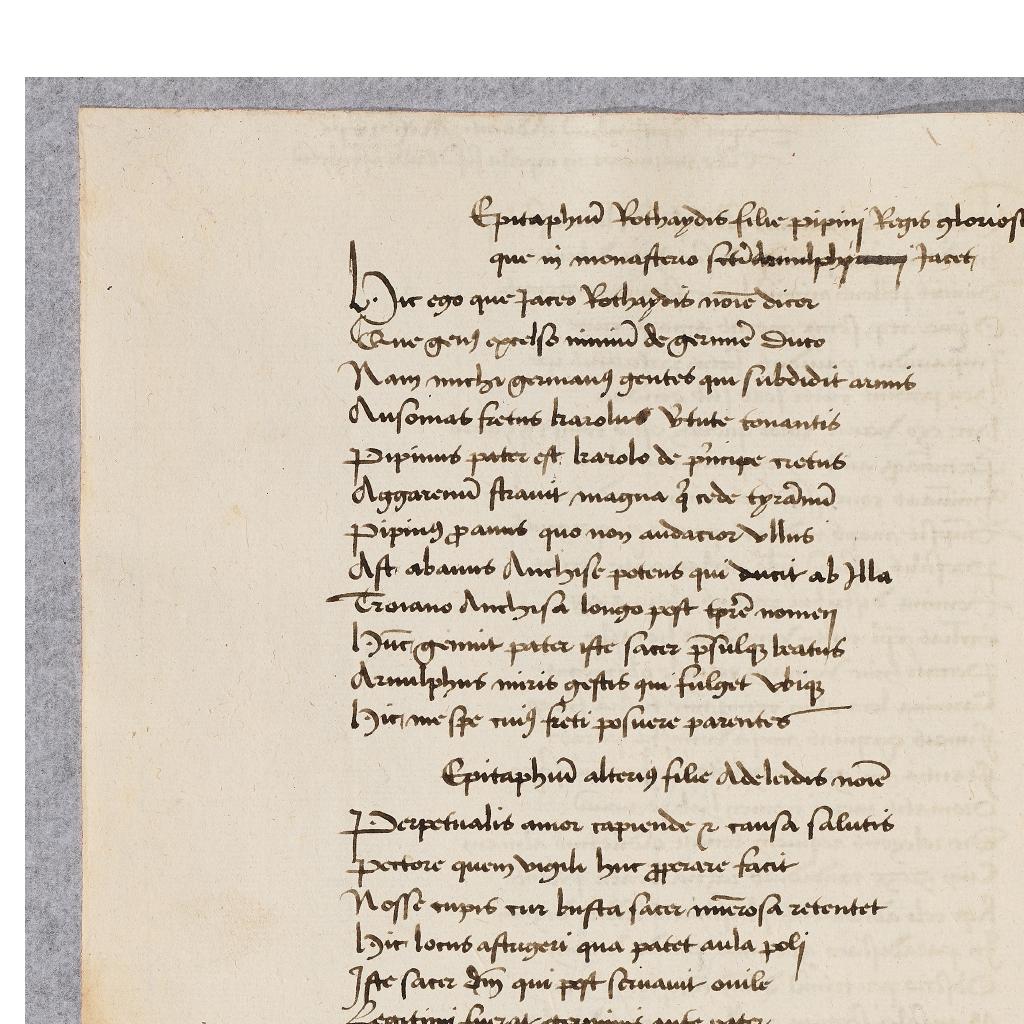 Epitaphiū Rothaydis filie pipinj Regis glorios
que in monasterio scti Arnulphj Jacet
Hic ego que Jaceo Rothaydis noīe dicor
Que genꝰ excelso nimiū de germīe Duco
Nam michi germanꝰ gentes qui subdidit armis
Ausonias fretus karolus v̓tute tonantis
Pipinus pater est karolo de p̓ncipe cretus
Aggarenū stravit magna q̓ cede tyrānū
Pipinꝰ ꝓavus quo non audacior vllus
Ast abavus Anchise potens qui ducit ab Illa
Troiano Anchisa longo post tp̄re nomen
Hūc genuit pater iste sacer p̄sulqꝫ beatus
Arnulphus miris gestis qui fulget vbiqꝫ
Hic me spe cuiꝰ freti posuere parentes
Epitaphiū alteriꝰ filie Adeleidis noīe
Perpetualis amor capiende ⁊ causa salutis
Pectore quem vigili huc ꝓperare facit
Nosse cupis cur busta sacer numerosa retentet
Hic locus astrigeri qua patet aula poli
Iste sacer dn̄i qui post servavit ovile
Legitimi fuerat germinis ante pater